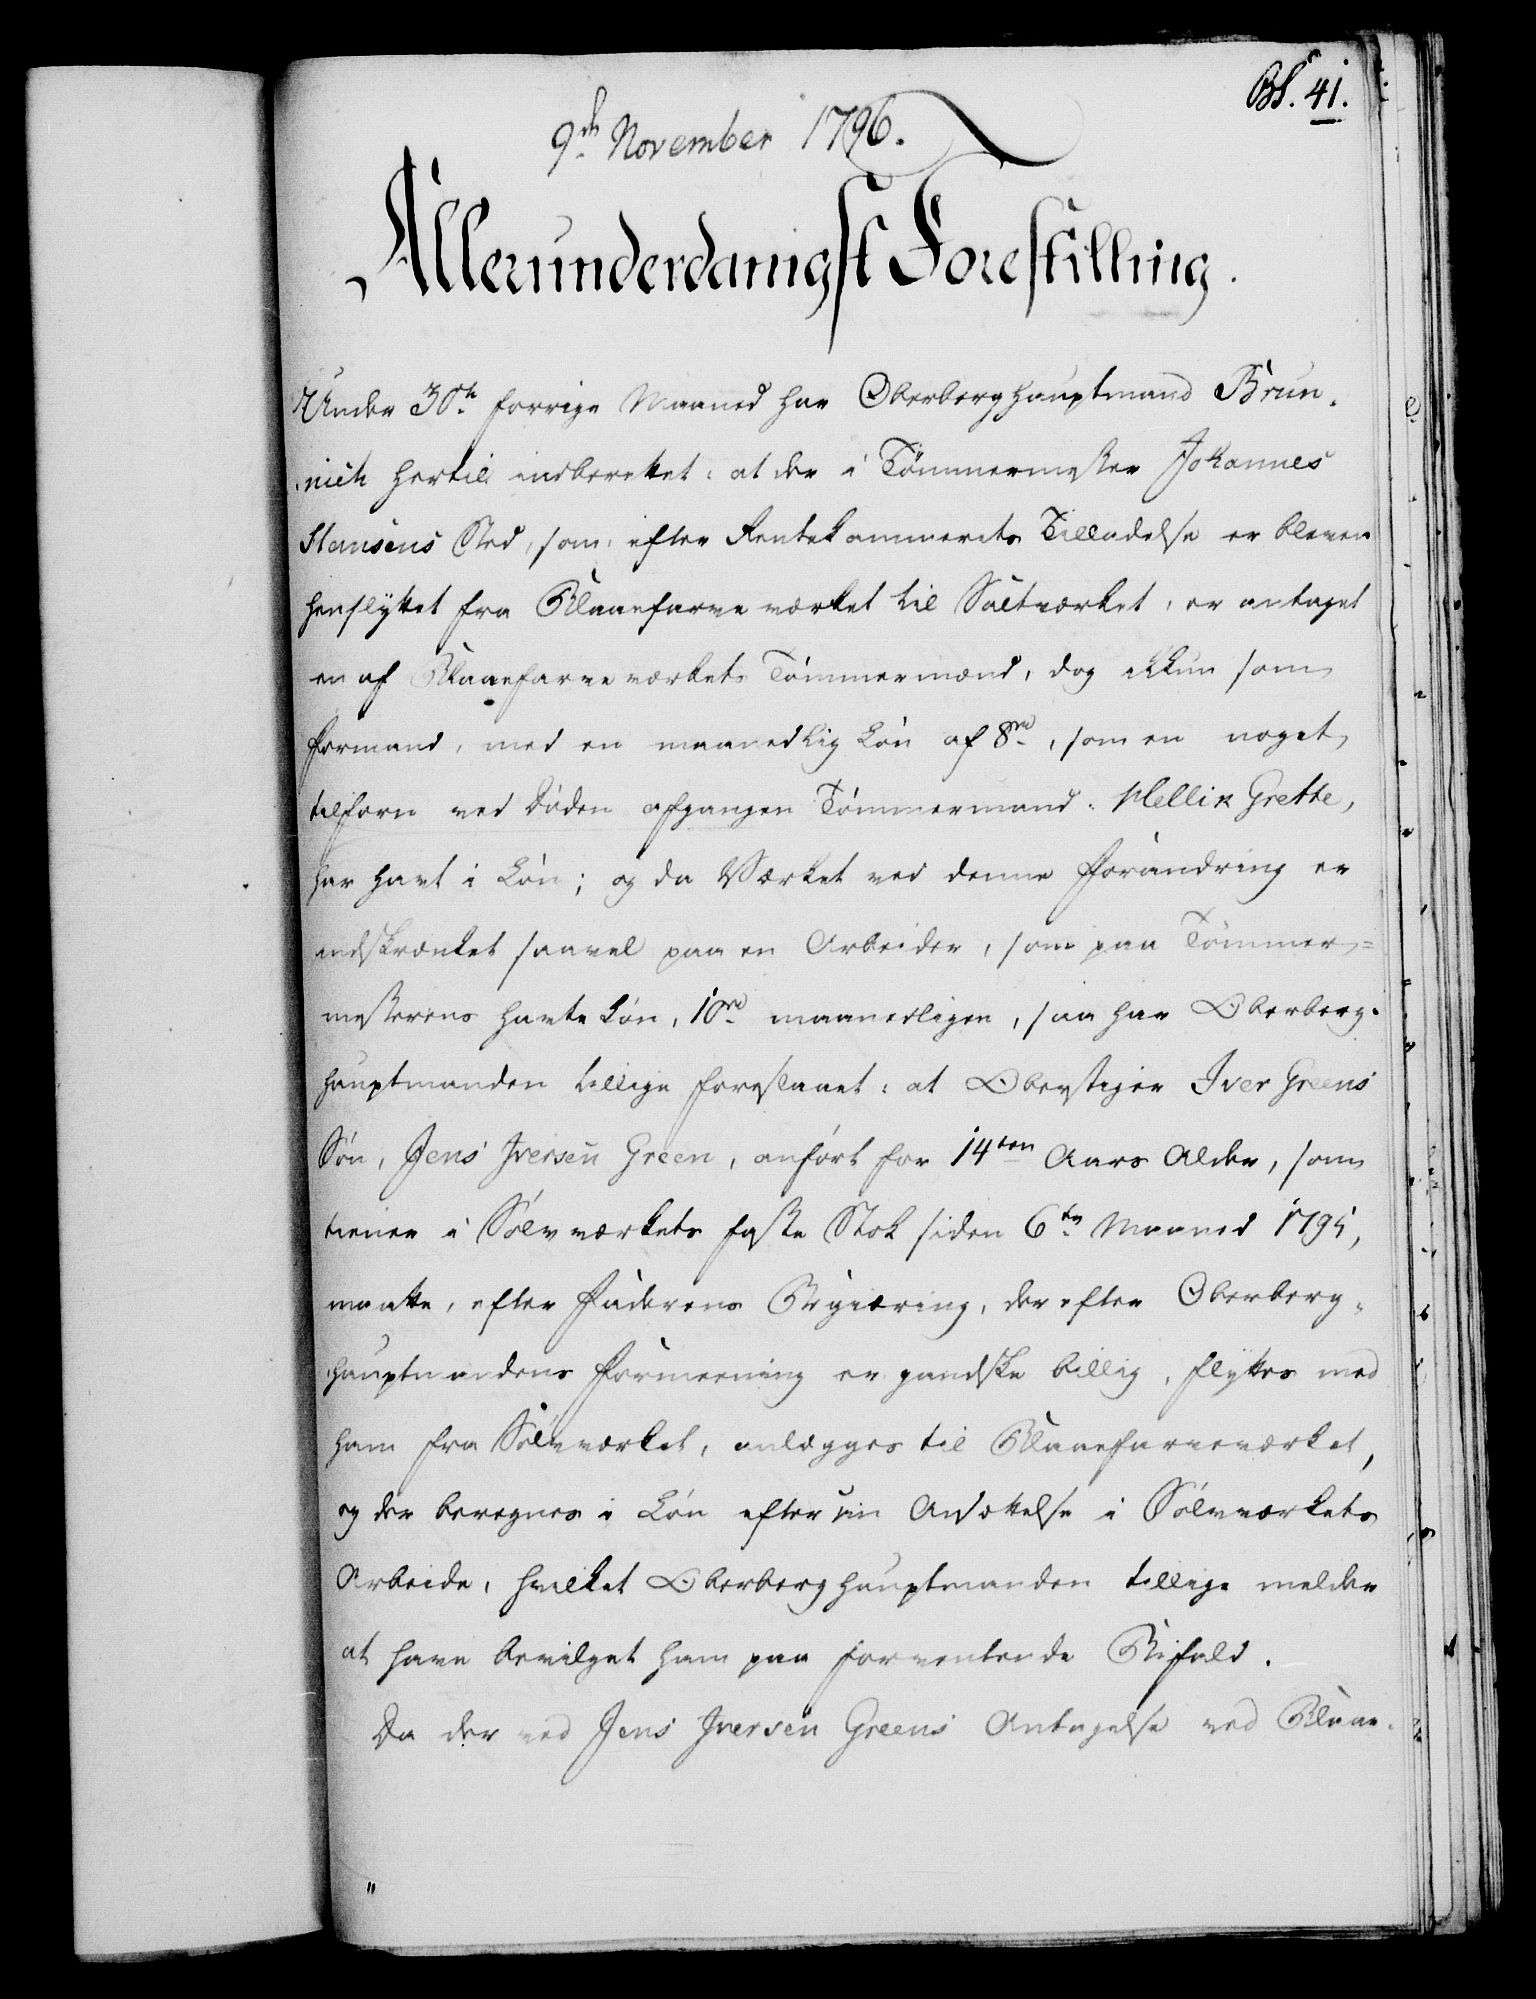 Bl. 41.
9de November 1796.
Allerunderdanigst Forestilling.
Under 30te forrige Maaned har Oberberghauptmand Brün-
nich hertil indberettet: at der i Tømmermester Johannes
Hansens Sted, som, efter Rentekammerets Tilladelse er bleven
henflyttet fra Blaaefarveværket til Saltværket, er antaget
en af Blaaefarveværkets Tømmermænd, dog ikkun som
Formand, med en maanedlig Løn af 8rd, som en noget
tilforn ved Døden afgangen Tømmermand: Hellik Grette,
har havt i Løn; og da Værket ved denne Forandring er
indskrænket saavel paa en Arbeider, som paa Tømmer-
mesterens havte Løn, 10rd maanedligen, saa har Oberberg-
hauptmanden tillige foreslaaet: at Oberstiger Iver Greens
Søn, Jens Iversen Green, anført for 14ten Aars Alder, som
tiener i Sølvværkets faste Stok siden 6te Maaned 1795,
maatte, efter Faderens Begiæring, der efter Oberberg-
hauptmandens Formeening er gandske billig, flyttes med
ham fra Sølvværket, anlægges til Blaaefarveværket,
og der beregnes i Løn efter sin Ansættelse i Sølvværkets
Arbeide, hvilket Oberberghauptmanden tillige melder
at have bevilget ham paa forventende Bifald.
Da der ved Jens Iversen Greens Antagelse ved Blaae-
"